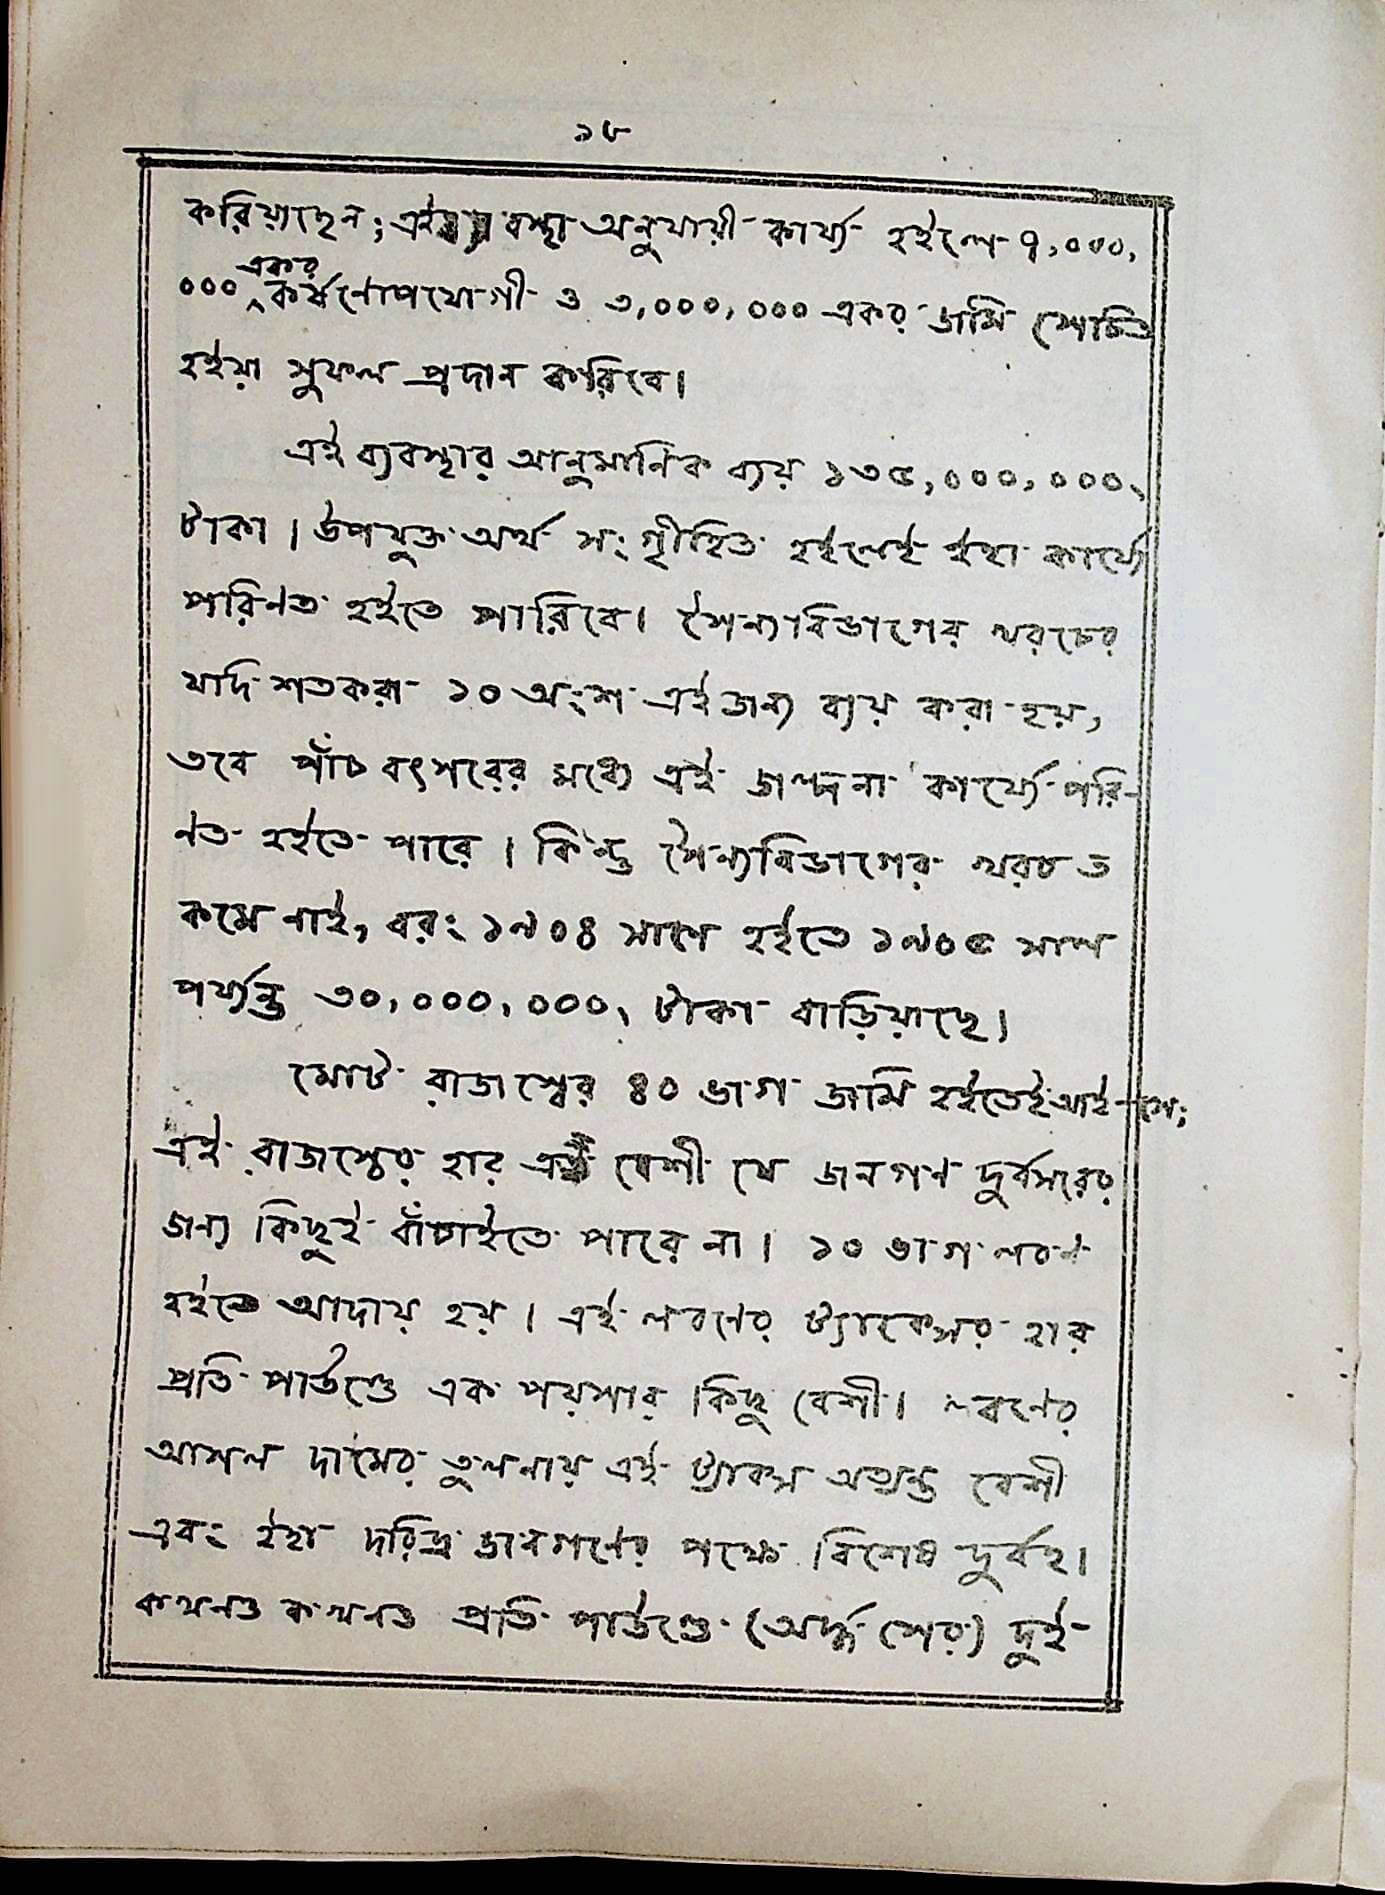 ১৮
করিয়াছেন; এই ব্যবস্থা অনুযায়ী কার্য্য হইলে ৭,০০০,
একর
০০০ ^ কর্ষণোপযোগী ও ৩,০০০,০০০ একর জমি সেচিত
হইয়া সুফল প্রদান করিবে।
এই ব্যবস্থার আনুমানিক ব্যয় ১৩৫,০০০,০০০৲
টাকা। উপযুক্ত অর্থ সংগৃহিত হইলেই ইহা কার্য্যে
পরিণত হইতে পারিবে। সৈন্যবিভাগের খরচের
যদি শতকরা ১০ অংশ এই জন্য ব্যয় করা হয়,
তবে পাঁচ বৎসরের মধ্যে এই জল্পনা কার্য্যে পরি-
ণত হইতে পারে। কিন্তু সৈন্যবিভাগের খরচ ত
কমে নাই, বরং ১৯০৪ সাল হইতে ১৯০৫ সাল
পর্য্যন্ত ৩০,০০০,০০০৲ টাকা বাড়িয়াছে।
মোট রাজস্বের ৪০ ভাগ জমি হইতেই আইসে;
এই রাজস্বের হার এত বেশী যে জনগণ দুর্বৎসরের
জন্য কিছুই বাঁচাইতে পারে না। ১০ ভাগ লবণ
হইতে আদায় হয়। এই লবণের ট্যাক্সের হার
প্রতি পাউণ্ডে এক পয়সার কিছু বেশী। লবণের
আসল দামের তুলনায় এই ট্যাক্স অত্যন্ত বেশী
এবং ইহা দরিদ্র জনগণের পক্ষে বিশেষ দুর্বহ।
কখনও কখনও প্রতি পাউণ্ডে (অর্দ্ধ সের) দুই-